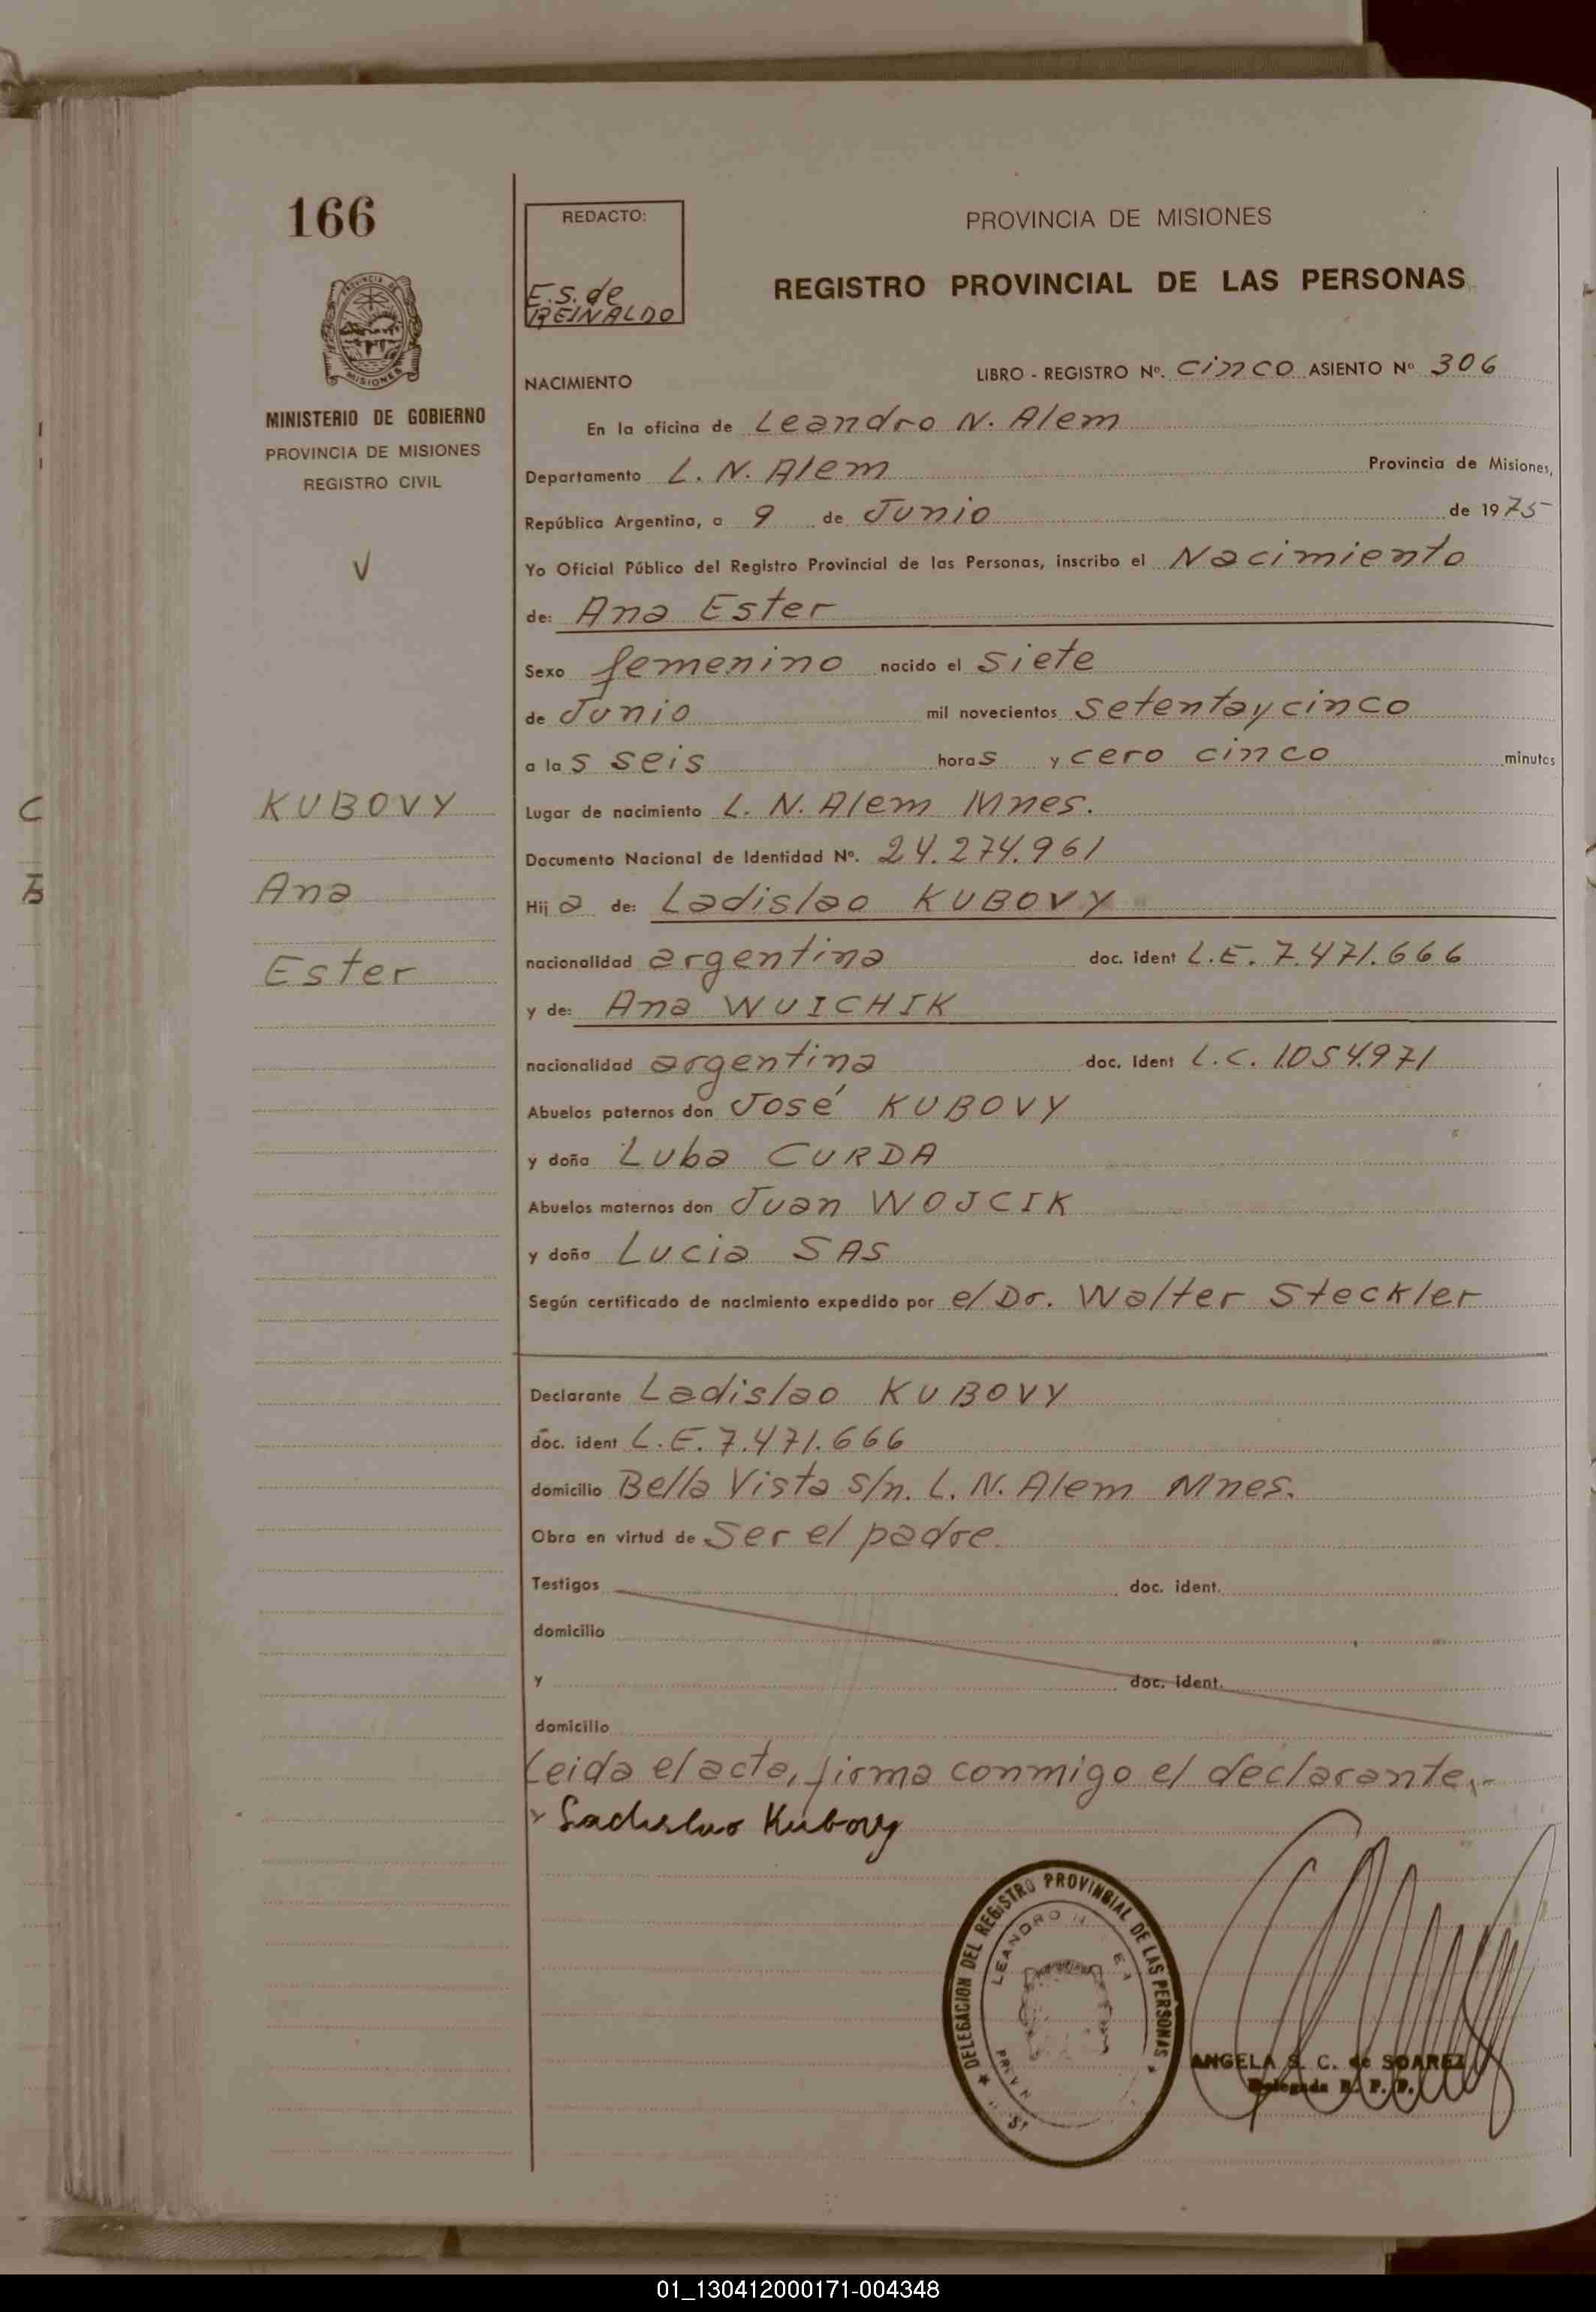 166
PROVINCIA DE
MISIONES
MINISTERIO DE GOBIERNO
PROVINCIA DE MISIONES
REGISTRO CIVIL
V
C
B
KUBOVY
Ana
Ester
REDACTO:
E.S. de
REINALDO
PROVINCIA DE MISIONES
REGISTRO PROVINCIAL DE LAS PERSONAS
NACIMIENTO
LIBRO - REGISTRO Nº. cinco ASIENTO Nº 306
En la oficina de Leandro N. Alem
Departamento L. N. Alem Provincia de Misiones,
República Argentina, a 9 de Junio de 1975
Yo Oficial Público del Registro Provincial de las Personas, inscribo el Nacimiento
de: Ana Ester
Sexo femenino nacido el siete
de Junio mil novecientos setenta y cinco
a las seis horas y cero cinco minutos
Lugar de nacimiento L. N. Alem Mnes.
Documento Nacional de Identidad Nº. 24.274.961
Hija de: Ladislao KUBOVY
nacionalidad argentina doc. ident L.E. 7.471.666
y de: Ana WUICHIK
nacionalidad argentina doc. ident L.C. 1.054.971
Abuelos paternos don José KUBOVY
y doña Luba CURDA
Abuelos maternos don Juan WOJCIK
y doña Lucia SAS
Según certificado de nacimiento expedido por el Dr. Walter Steckler
Declarante Ladislao KUBOVY
doc. ident L.E. 7.471.666
domicilio Bella Vista s/n. L. N. Alem Mnes.
Obra en virtud de Ser el padre.
Testigos doc. ident.
domicilio
y doc. ident.
domicilio
Leida el acta, firma conmigo el declarante.-
Ladislao Kubovy
DELEGACION DEL REGISTRO PROVINCIAL DE LAS PERSONAS
LEANDRO N.
ANGELA S. C. de SOAREZ
Delegada R. P. P.
01_130412000171-004348